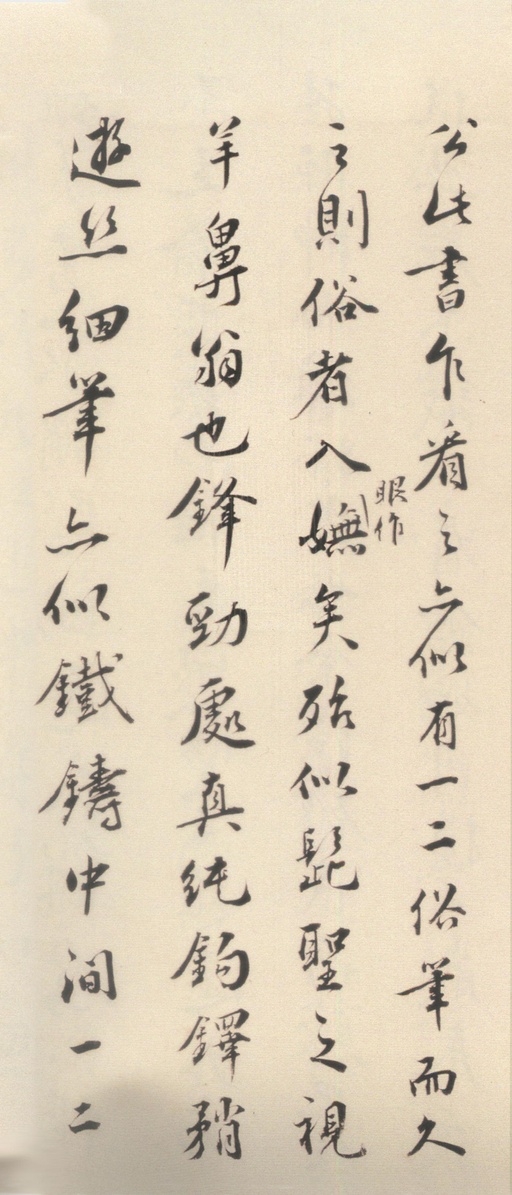 公此書乍看之亦似有一二俗筆而久
之則俗者入嫵矣殆似髭聖之視
眼作
羊鼻翁也鋒勁處真純鈎鐸矟
遊絲細筆亦似鐵鑄中間一二